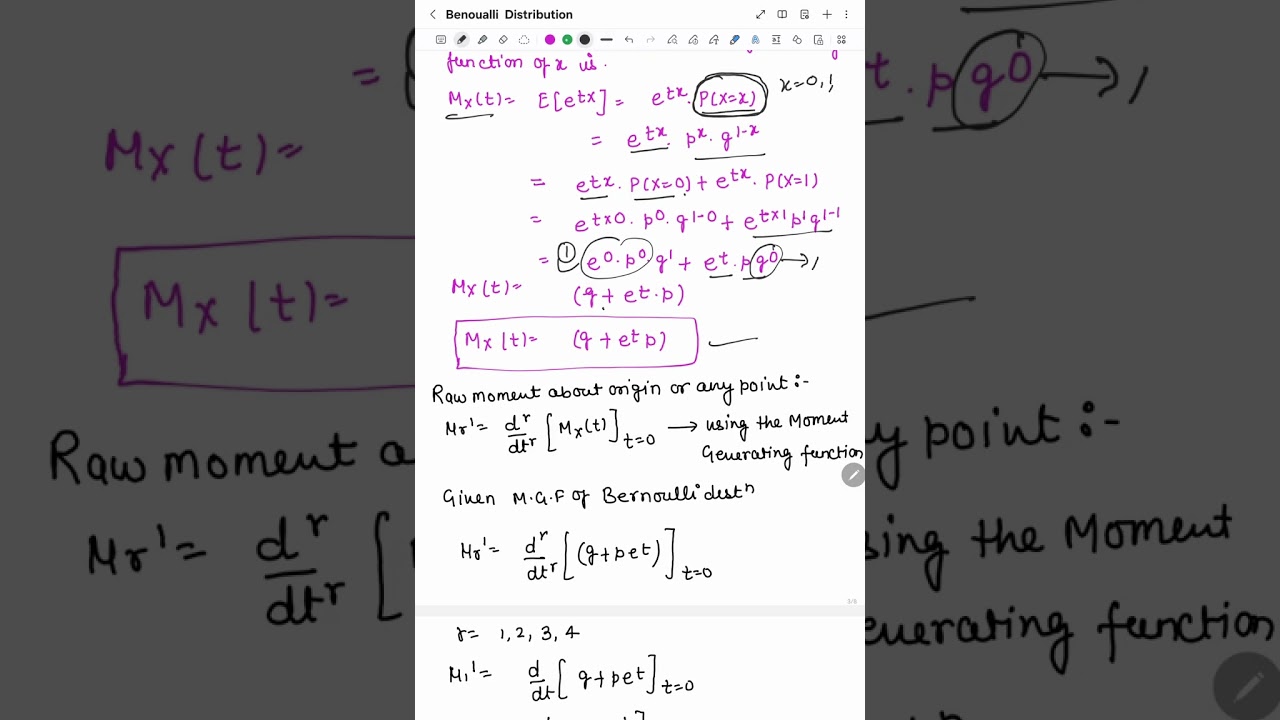 Benoualli Distribution
function of x is.
Mx(t)= E[etx] = e^tx. P(X=x) x=0,1
= e^tx. p^x. q^1-x
= e^tx. P(X=0) + e^tx. P(X=1)
= e^tx0. p^0. q^1-0 + e^tx1 p^1 q^1-1
= ① e^0. p^0. q^1 + e^t. p q^0 → 1
Mx(t)= (q + e^t. p)
Mx(t)= (q + e^t p)
Raw moment about origin or any point :-
Mr'= d^r/dt^r [Mx(t)] t=0 → using the Moment
Generating function
Given M.G.F of Bernoulli dist^n
Mr'= d^r/dt^r [(q+pe^t)] t=0
3/8
r= 1, 2, 3, 4
M1'= d/dt [q+pe^t] t=0